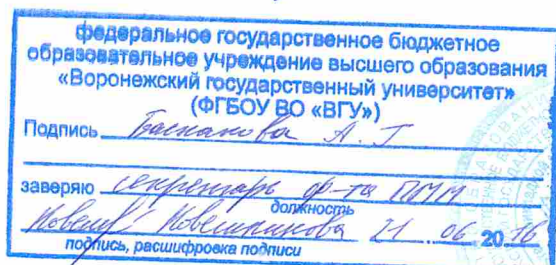 федеральное государственное бюджетное
образовательное учреждение высшего образования
«Воронежский государственный университет»
(ФГБОУ ВО «ВГУ»)
Подпись Баскакова А. Г
заверяю секретарь ф-та ПММ
должность
21.06.2016
подпись, расшифровка подписи